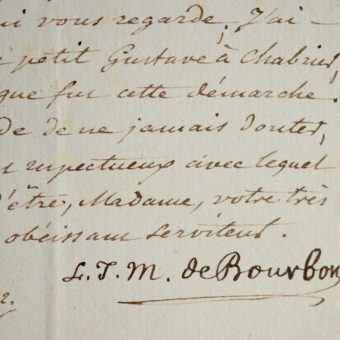 ui vous regarde. J'ai -
petit Gustave à Chabrier,
que fut cette démarche.
de de ne jamais douter,
respectueux avec lequel
d'être, Madame, votre très
obéissant serviteur.
L. J. M. de Bourbon
2.